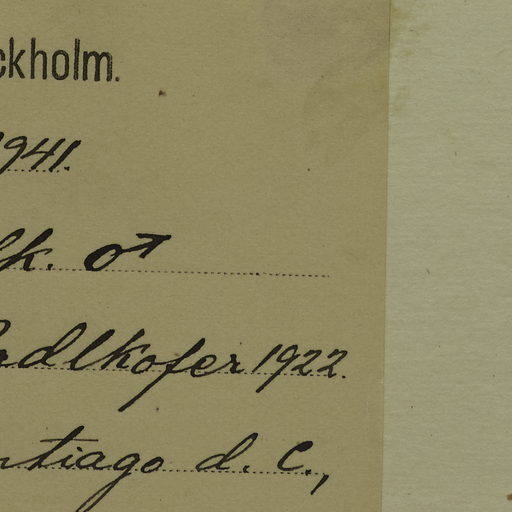 ckholm.
1941.
lk. ♂
adlkofer 1922.
ntiago d. C.,